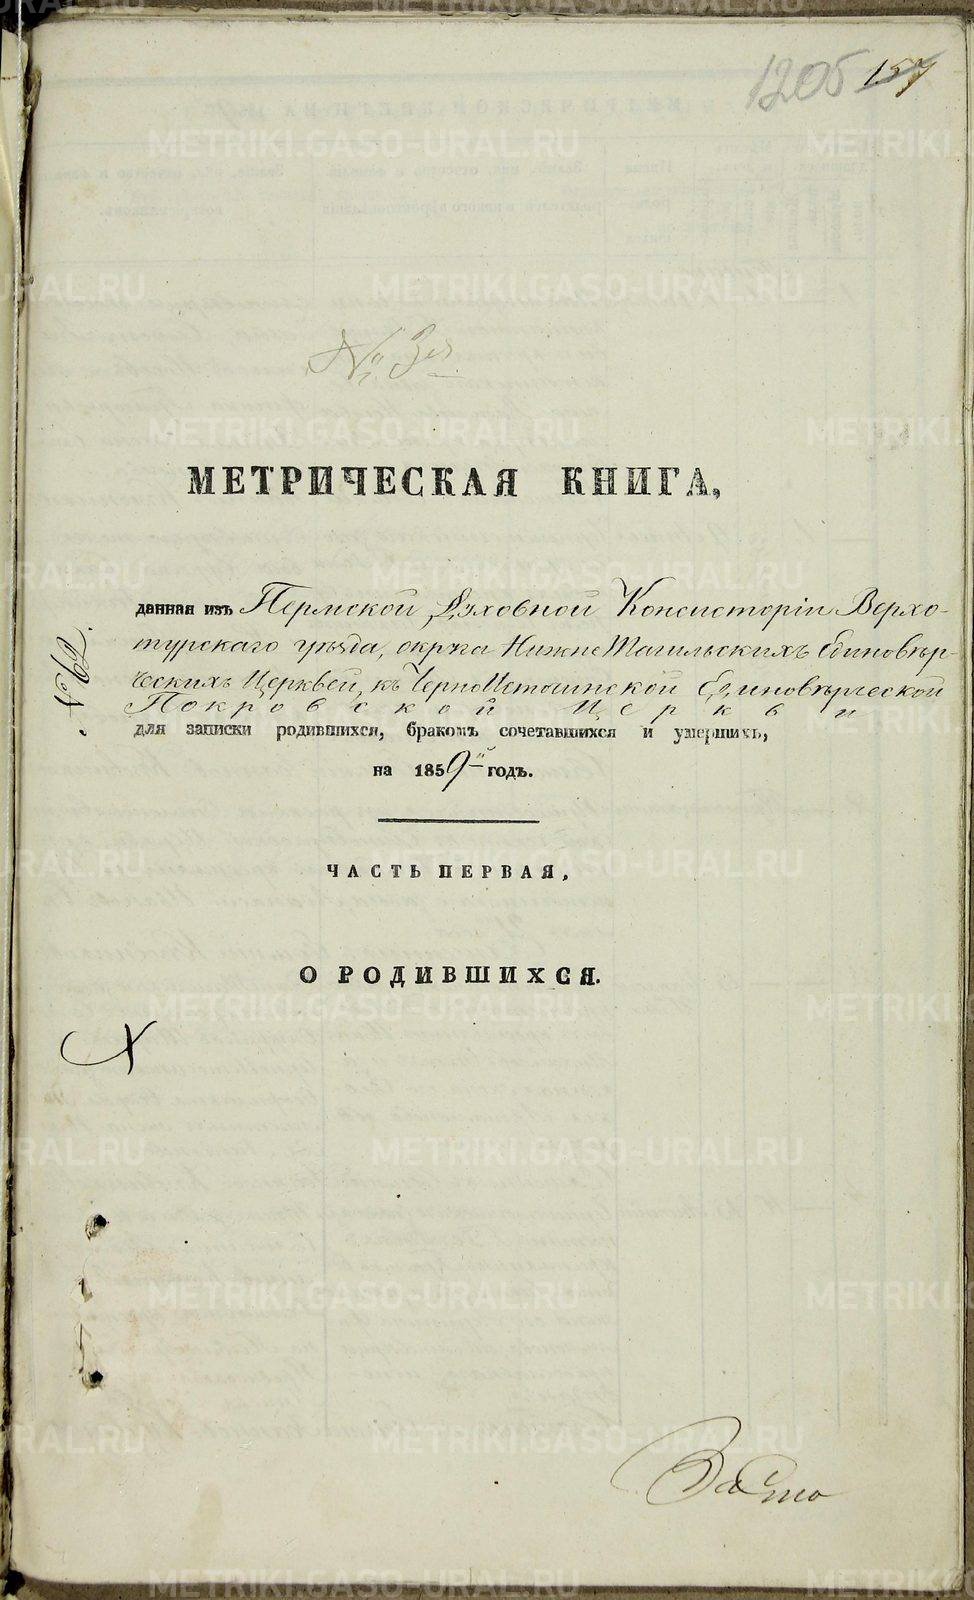 1205 157
№ 3й
МЕТРИЧЕСКАЯ КНИГА,
данная изъ Пермской Духовной Консисторіи Верхо-
турскаго уѣзда, округа НижнеТагильскихъ Единовѣр-
ческихъ Церквей, къ ЧерноИсточинской Единовѣрческой
Покровской Церкви
для записки родившихся, бракомъ сочетавшихся и умершихъ,
на 1859й годъ.
ЧАСТЬ ПЕРВАЯ,
О РОДИВШИХСЯ.
METRIKI.GASO-URAL.RU